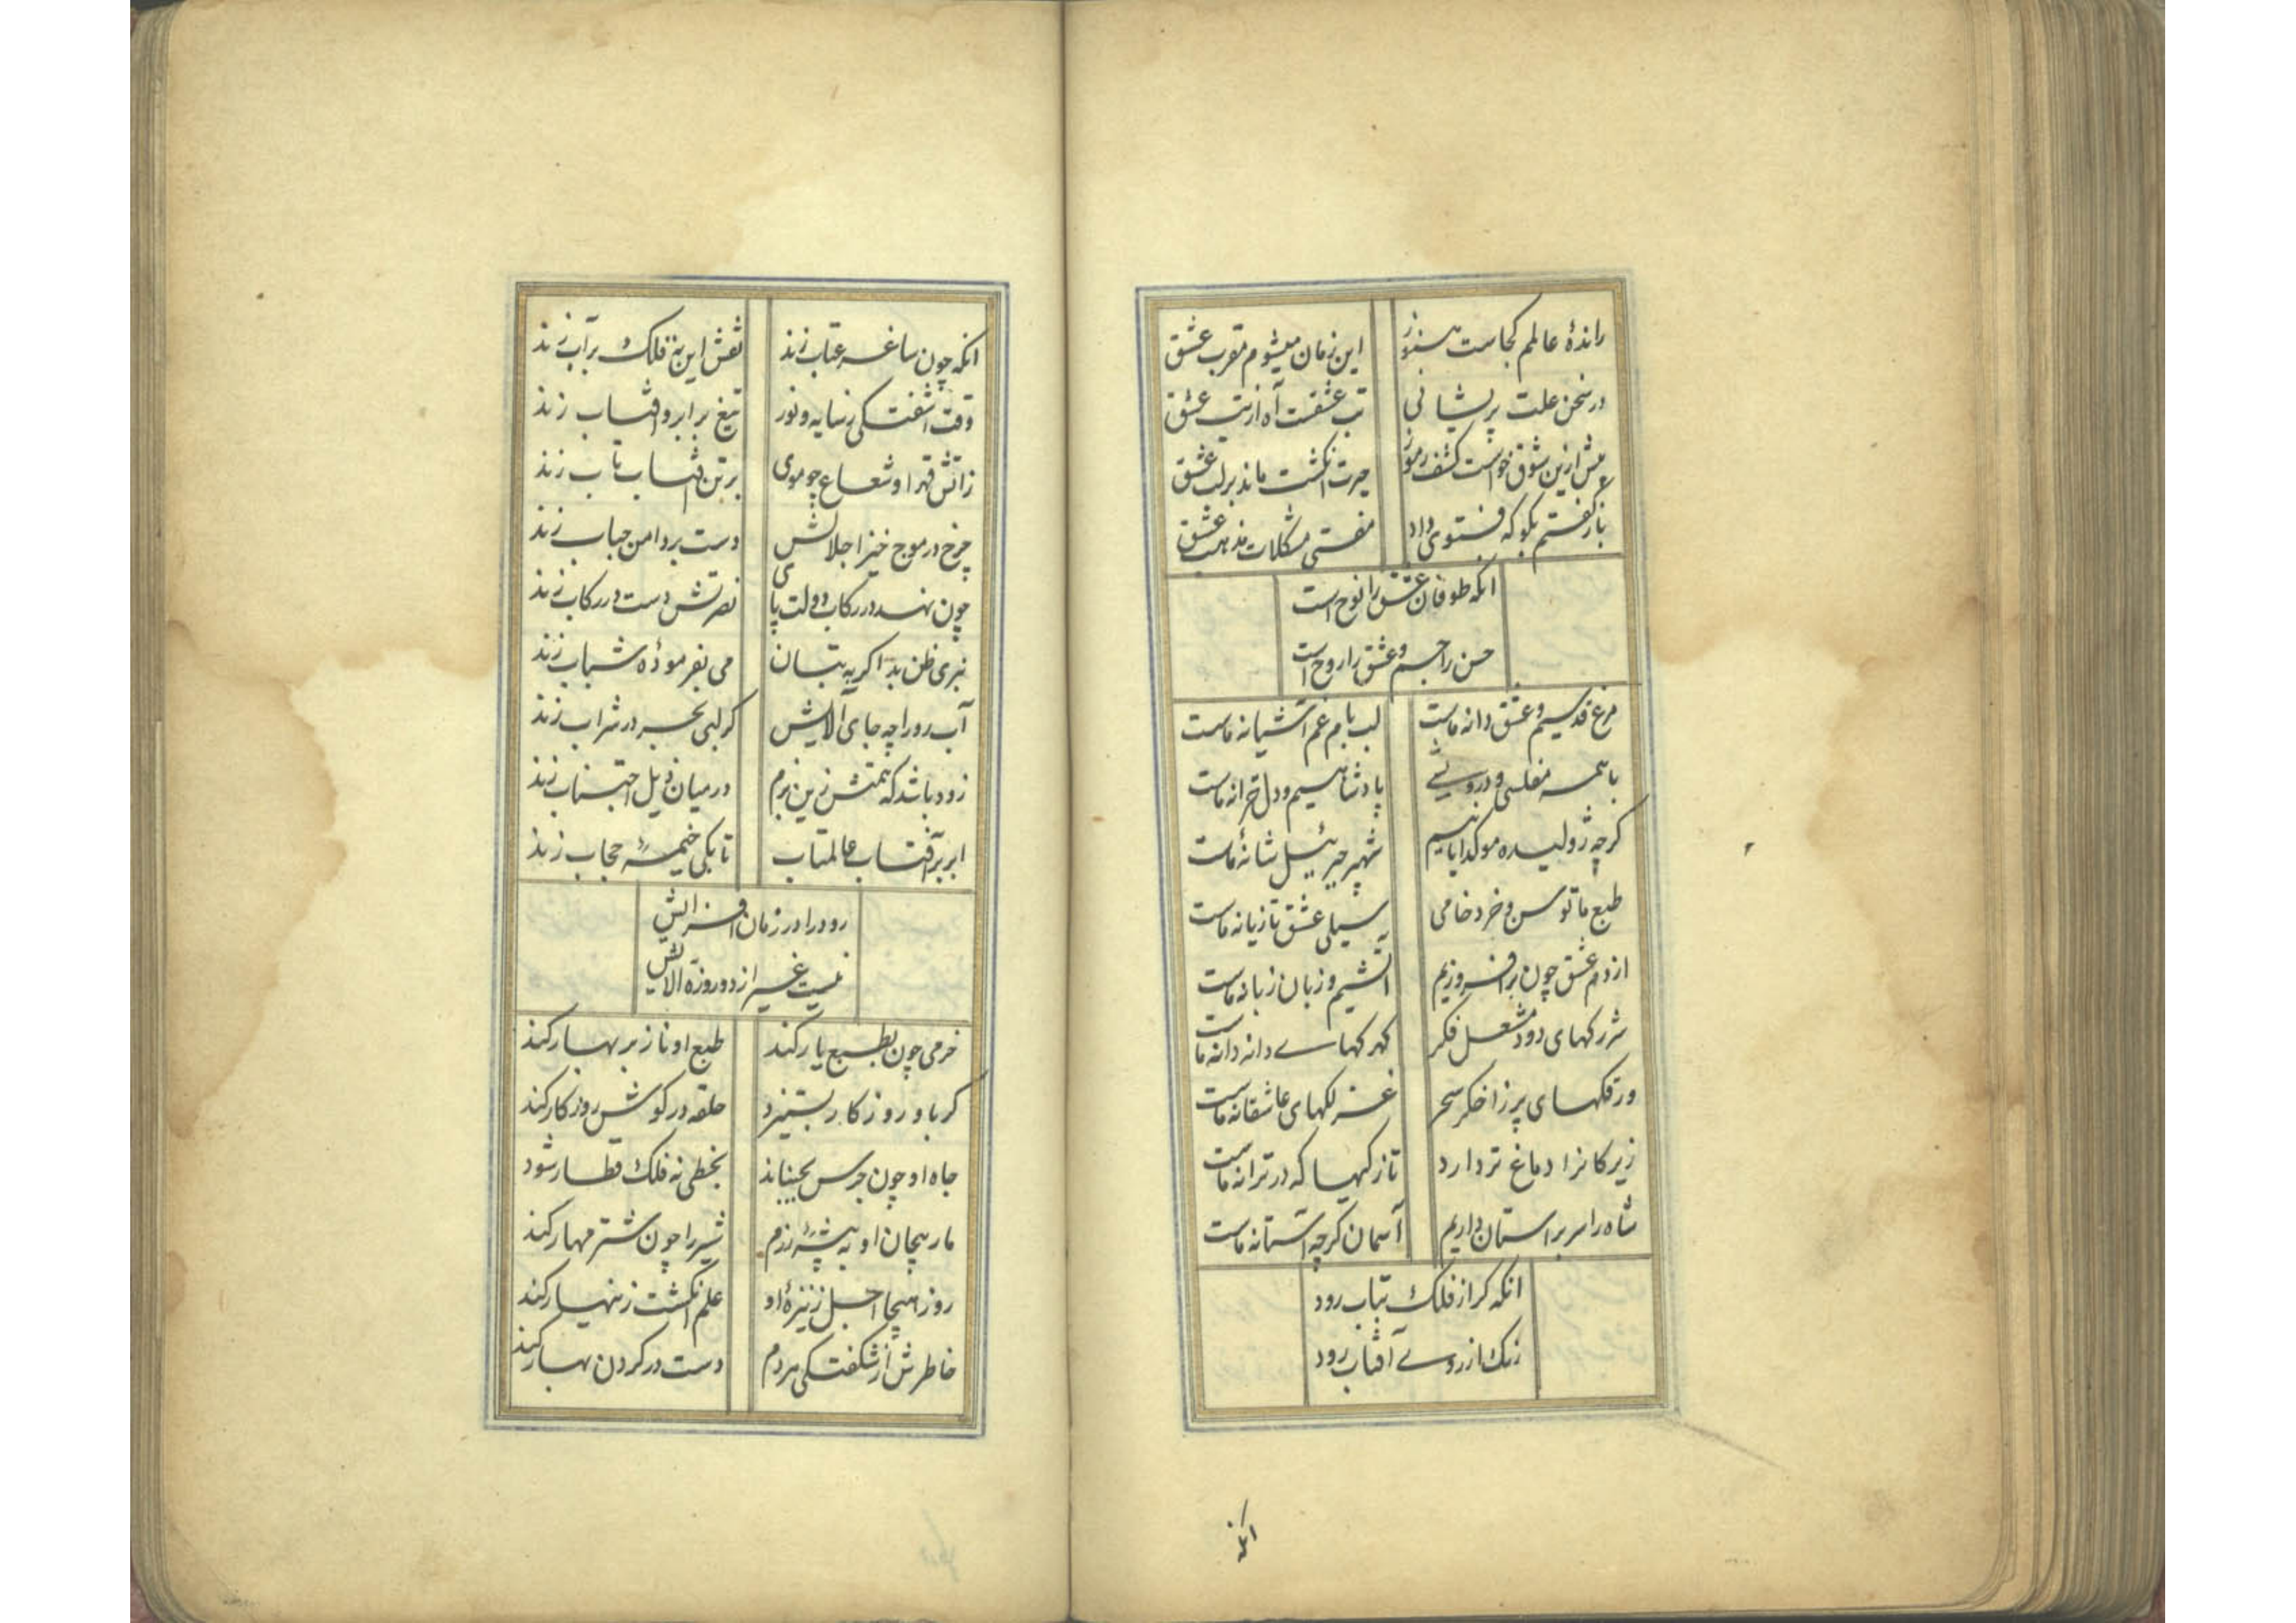 راندهٔ عالم کجاست هنوز
این زمان میشوم مقرب عشق
در سخن علت پریشانی
تب عشقست آه از تب عشق
پیش ازین شوق خواست کشف رموز
حیرت انکشت ماند بر لب عشق
باز کفتم بکو که فتوی داد
مفتی مشکلات مذهب عشق
انکه طوفان عشق را نوح است
حسن را جسم و عشق را روح است
مرغ قدسیم و عشق دانه ماست
لب بام غم آشیانه ماست
با همه مفلسی و درویشی
پادشاهیم و دل خزانه ماست
کرچه ژولیده مو کدایانیم
شهپر جبرئیل شانهٔ ماست
طبع ما توسن و خرد خامی
سیلی عشق تازیانه ماست
از دم عشق چون برافروزیم
آتشیم و زبان زبانه ماست
شررکهای دود مشعل فکر
کهرکهای دانه دانه ماست
ورقکهای پر ز اخکر سحر
غزلکهای عاشقانه ماست
زیرکانرا دماغ تر دارد
تازکیها که در ترانه ماست
شاه را سر بر استان داریم
آسمان کرچه آستانه ماست
انکه کر از فلک بتاب رود
رنک از روی آفتاب رود
انکه
انکه چون ساغر عتاب زند
نقش این نه فلک بر آب زند
وقت اشفتکی ز سایه و نور
تیغ بر ابر و افتاب زند
ز اتش قهر او شعاع چو موی
بر تن افتاب تاب زند
چرخ در موج خیز اجلالش
دست بر دامن حباب زند
چون نهد در رکاب دولت پای
نصرتش دست در رکاب زند
نبری ظن بد اکر به بتان
می بفرمودهٔ شباب زند
آب رو را چه جای آلایش
کر لبی بحر در شراب زند
زود باشد که همتش زین بزم
در میان ذیل اجتناب زند
ابر بر آفتاب عالمتاب
تا بکی خیمهٔ حجاب زند
رود را در زمان افزایش
نیست غیر از دو روزه آلایش
خرمی چون بطبع یار کند
طبع او ناز بر بهار کند
کر با و روزکار بستیزد
حلقه در کوش روزکار کند
جاه او چون جرس بجنباند
بخطی نه فلک قطار شود
مار پیچان او به بیشهٔ رزم
شیر را چون شتر مهار کند
روز هیجا اجل ز نیزهٔ او
علم انکشت زینهار کند
خاطرش از شکفتکی هر دم
دست در کردن بهار کند